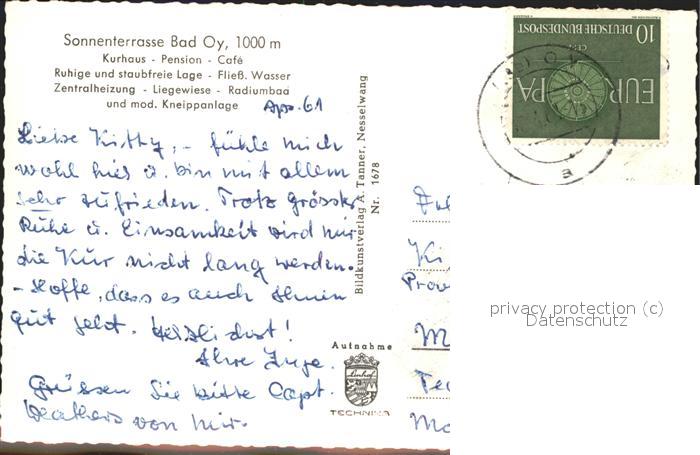 Sonnenterrasse Bad Oy, 1000 m
Kurhaus - Pension - Café
Ruhige und staubfreie Lage - Fließ. Wasser
Zentralheizung - Liegewiese - Radiumbad
und mod. Kneippanlage
Apr. 61
Liebe Kitty, - fühle mich
wohl hier u. bin mit allem
sehr zufrieden. Trotz grösster
Ruhe u. Einsamkeit wird mir
die Kur nicht lang werden.
- Hoffe, dass es auch Ihnen
gut geht. Herzlichst!
Ihre Inge.
Grüssen Sie bitte Capt.
Weathers von mir.
Bildkunstverlag A. Tanner, Nesselwang
Nr. 1678
Aufnahme
Linhof
TECHNIKA
10 DEUTSCHE BUNDESPOST
CEPT
EUROPA
Ki
Prov
M
Te
Mo
privacy protection (c)
Datenschutz